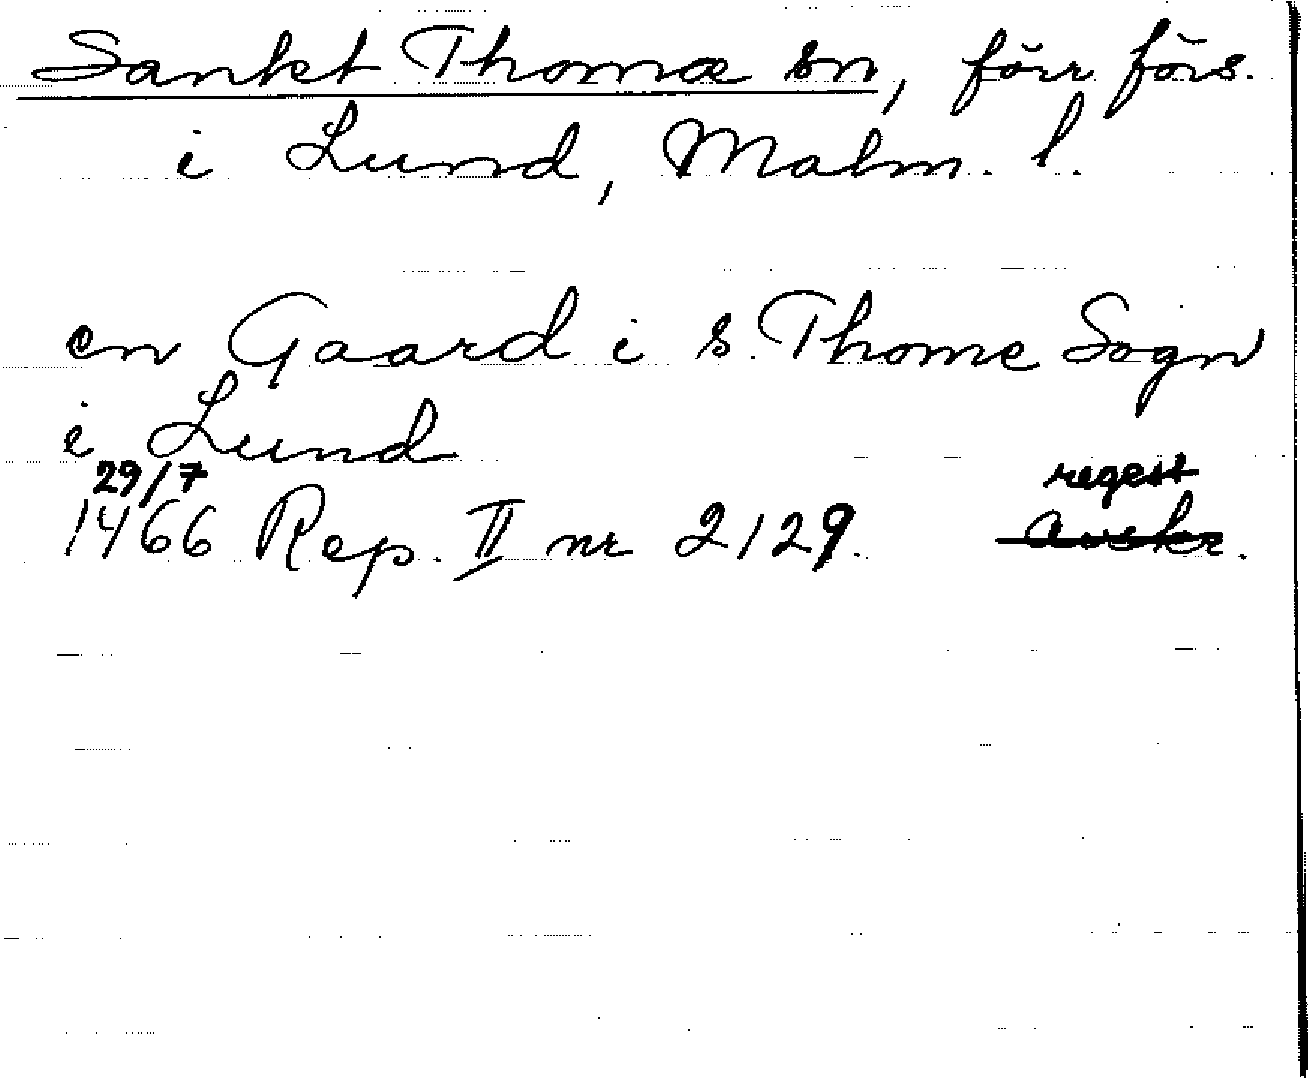 Sankt Thomæ sn, förr förs.
i Lund, Malm. l.
en Gaard i S. Thome Sogn
i Lund
29/7 regest
1466 Rep. II nr 2129. avskr.